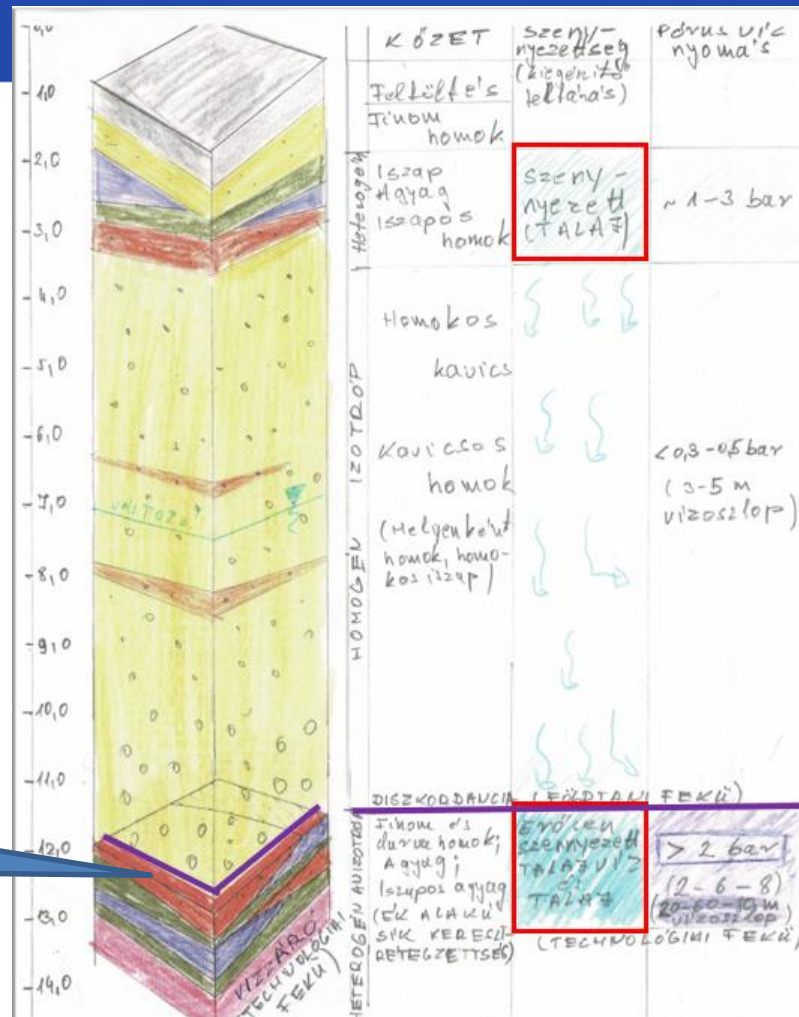 0,0
-1,0
-2,0
-3,0
-4,0
-5,0
-6,0
-7,0
-8,0
-9,0
-10,0
-11,0
-12,0
-13,0
-14,0
VÁLTOZÓ
VÍZZÁRÓ
(TECHNOLÓGIAI
FEKÜ)
Heterogén
HOMOGÉN IZOTRÓP
HETEROGÉN ANIZOTRÓP
KŐZET
Feltöltés
Finom
homok
Iszap
Agyag
Iszapos
homok
Homokos
kavics
Kavicsos
homok
(Helyenként
homok, homo-
kos iszap)
DISZKORDANCIA (FÖLDTANI FEKÜ)
Finom és
durva homok;
Agyag;
Iszapos agyag
(ÉK ALAKÚ
SÍK KERESZT-
RÉTEGZETTSÉG)
szeny-
nyezettség
(kiegészítő
feltárás)
szeny-
nyezett
(TALAJ)
Erősen
szennyezett
TALAJVÍZ
és
TALAJ
(TECHNOLÓGIAI FEKÜ)
Pórus víz
nyomás
~ 1-3 bar
<0,3-0,5 bar
(3-5 m
vízoszlop)
> 2 bar
(2-6-8)
vízoszlop)